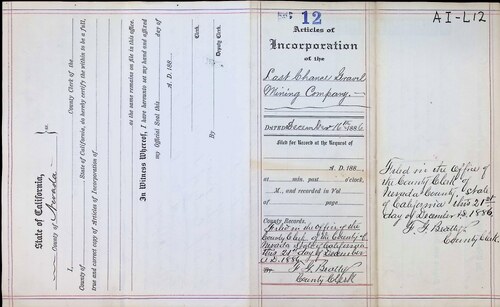 State of California,
County of Nevada
I, County Clerk of the
County of State of California, do hereby certify the within to be a full,
true and correct copy of Articles of Incorporation of
as the same remains on file in this office.
In Witness Whereof, I have hereunto set my hand and affixed
my Official Seal this day of
A. D. 188
Clerk.
By Deputy Clerk.
No. 12
Articles of
Incorporation
of the
Last Chance Gravel
Mining Company.
DATED December 16th 1886
Filed for Record at the Request of
A. D. 188
at min. past o'clock
M., and recorded in Vol
of page
County Records.
Filed in the Office of the
County Clerk of the County of
Nevada State of California
this 21st day of December
A.D. 1886
F. G. Beatty
County Clerk
A I-L12
Filed in the Office of
the County Clerk of
Nevada County, State
of California this 21st
day of December A.D. 1886
F. G. Beatty
County Clerk.